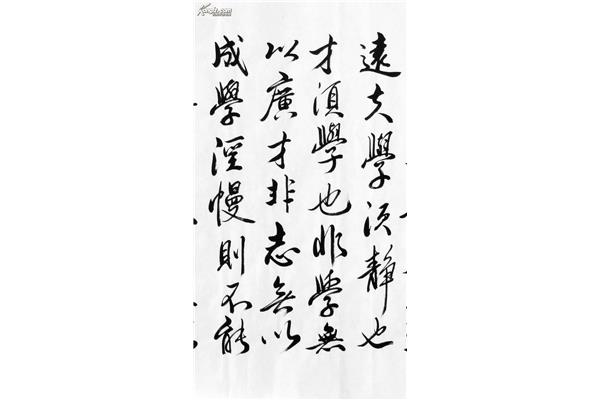 遠夫學須靜也
才須學也非學無
以廣才非志無以
成學淫慢則不能